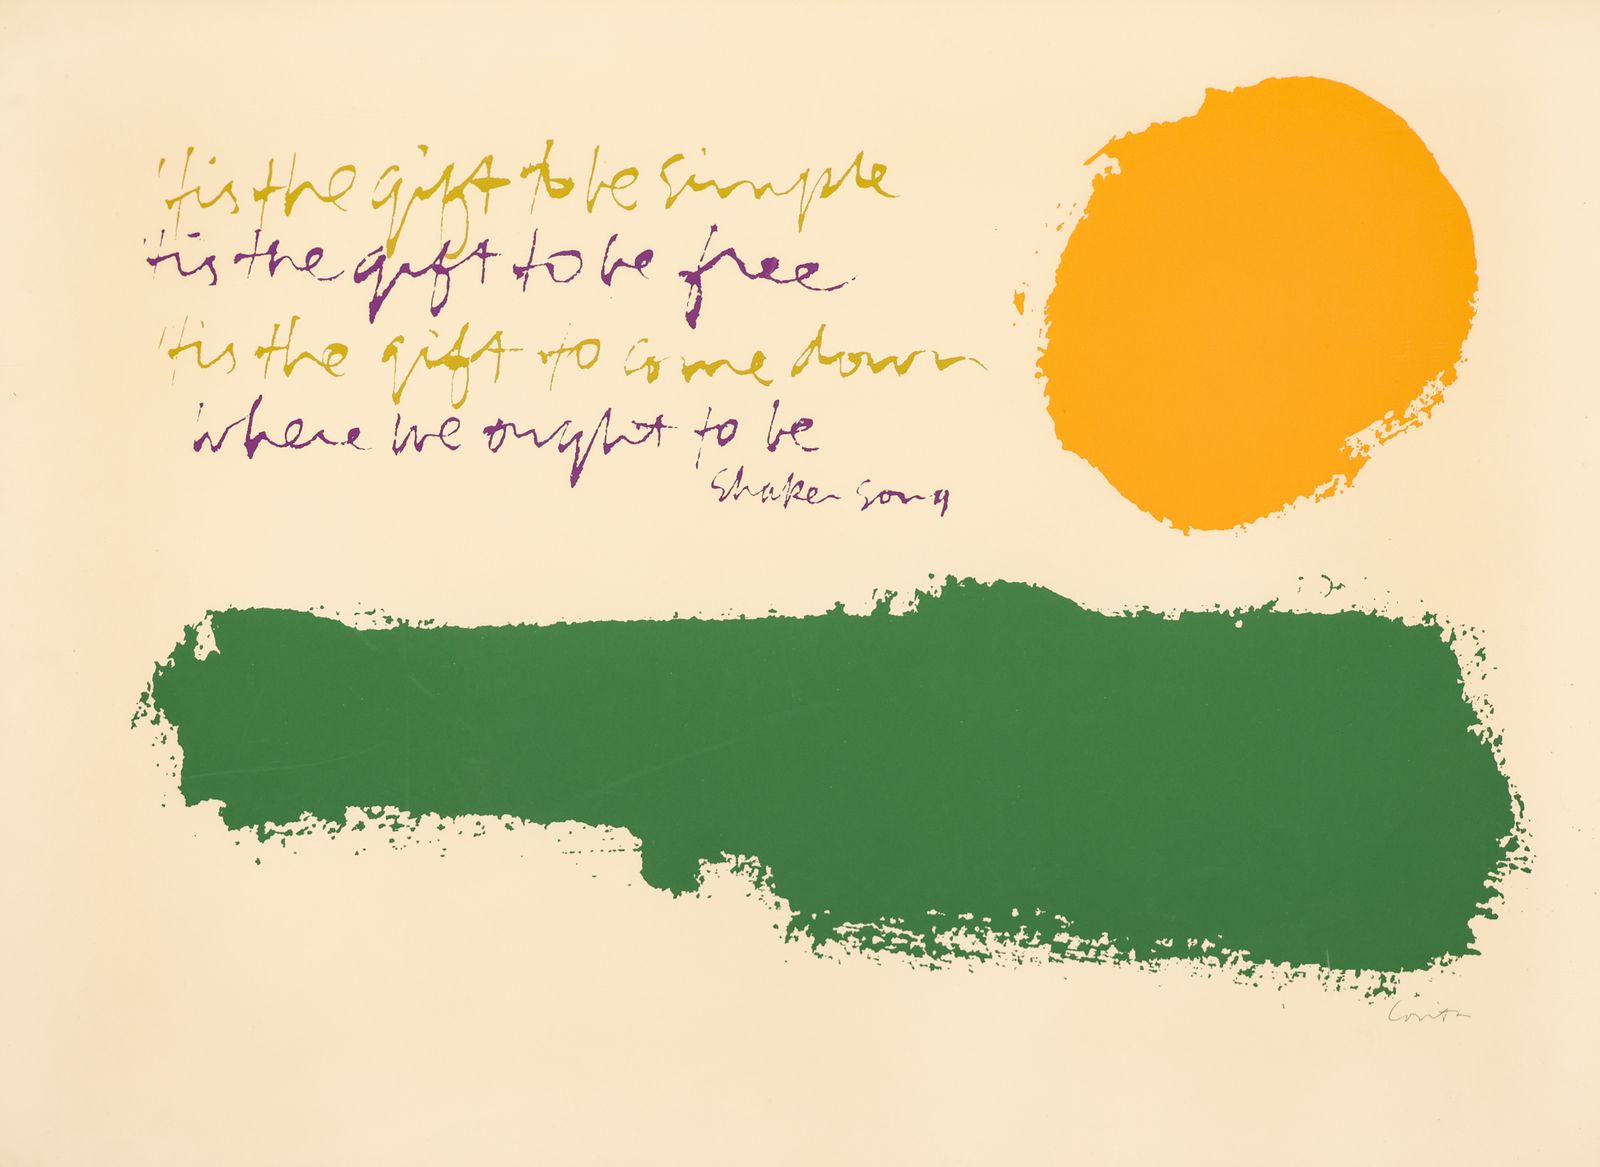 'tis the gift to be simple
'tis the gift to be free
'tis the gift to come down
where we ought to be
Shaker song
Corita